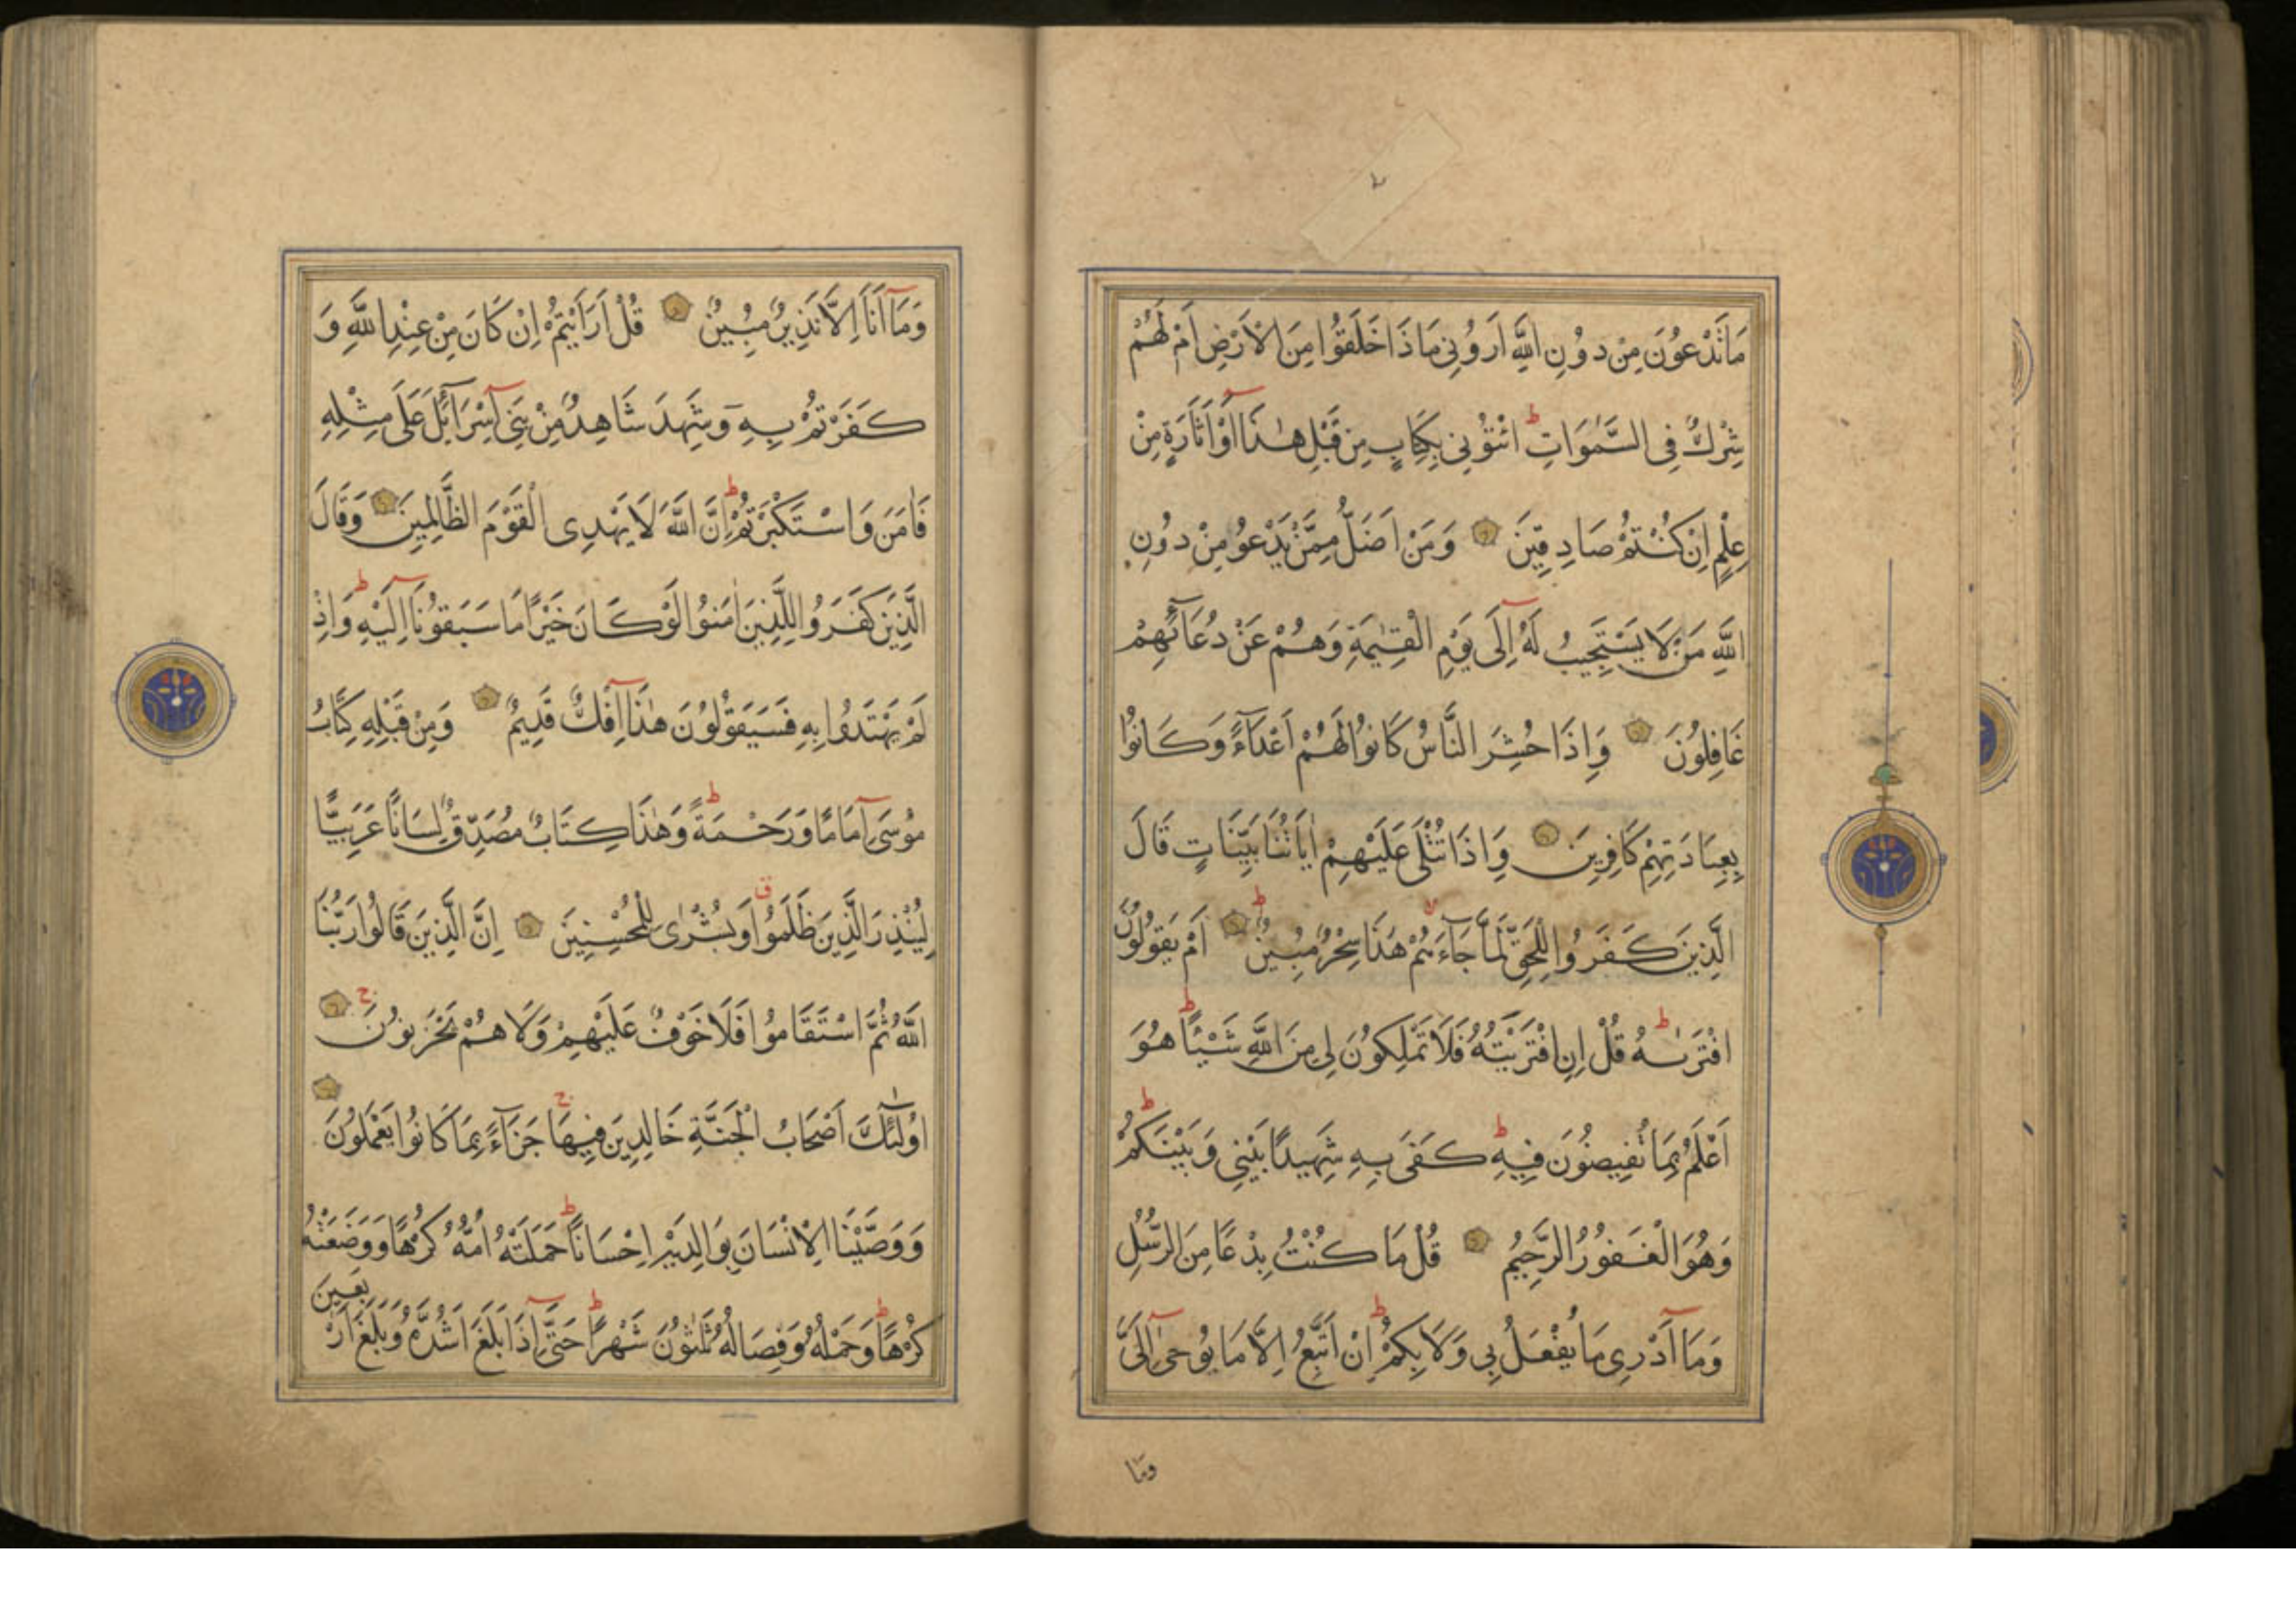 مَا تَدْعُونَ مِنْ دُونِ اللَّهِ اَرُونِي مَاذَا خَلَقُوا مِنَ الْاَرْضِ اَمْ لَهُمْ
شِرْكٌ فِي السَّمٰوَاتِ ط ائْتُونِي بِكِتَابٍ مِنْ قَبْلِ هٰذَا اَوْ اَثَارَةٍ مِنْ
عِلْمٍ اِنْ كُنْتُمْ صَادِقِينَ وَمَنْ اَضَلُّ مِمَّنْ يَدْعُو مِنْ دُونِ
اللَّهِ مَنْ لَا يَسْتَجِيبُ لَهُ اِلَى يَوْمِ الْقِيٰمَةِ وَهُمْ عَنْ دُعَائِهِمْ
غَافِلُونَ وَاِذَا حُشِرَ النَّاسُ كَانُوا لَهُمْ اَعْدَاءً وَكَانُوا
بِعِبَادَتِهِمْ كَافِرِينَ وَاِذَا تُتْلَى عَلَيْهِمْ اٰيَاتُنَا بَيِّنَاتٍ قَالَ
الَّذِينَ كَفَرُوا لِلْحَقِّ لَمَّا جَاءَهُمْ لا هَذَا سِحْرٌ مُبِينٌ ط اَمْ يَقُولُونَ
افْتَرٰىهُ ط قُلْ اِنِ افْتَرَيْتُهُ فَلَا تَمْلِكُونَ لِي مِنَ اللَّهِ شَيْئًا ط هُوَ
اَعْلَمُ بِمَا تُفِيضُونَ فِيهِ ط كَفَى بِهِ شَهِيدًا بَيْنِي وَبَيْنَكُمْ ط
وَهُوَ الْغَفُورُ الرَّحِيمُ قُلْ مَا كُنْتُ بِدْعًا مِنَ الرُّسُلِ
وَمَا اَدْرِي مَا يُفْعَلُ بِي وَلَا بِكُمْ ط اِنْ اَتَّبِعُ اِلَّا مَا يُوحٰى اِلَيَّ
وما
وَمَا اَنَا اِلَّا نَذِيرٌ مُبِينٌ قُلْ اَرَاَيْتُمْ اِنْ كَانَ مِنْ عِنْدِ اللَّهِ وَ
كَفَرْتُمْ بِهِ وَشَهِدَ شَاهِدٌ مِنْ بَنِي اِسْرَائِلَ عَلَى مِثْلِهِ
فَاٰمَنَ وَاسْتَكْبَرْتُمْ ط اِنَّ اللَّهَ لَا يَهْدِى الْقَوْمَ الظَّالِمِينَ وَقَالَ
الَّذِينَ كَفَرُوا لِلَّذِينَ اٰمَنُوا لَوْ كَانَ خَيْرًا مَا سَبَقُونَا اِلَيْهِ ط وَاِذْ
لَمْ يَهْتَدُوا بِهِ فَسَيَقُولُونَ هٰذَا اِفْكٌ قَدِيمٌ وَمِنْ قَبْلِهِ كِتَابُ
مُوسَى اِمَامًا وَرَحْمَةً ط وَهٰذَا كِتَابٌ مُصَدِّقٌ لِسَانًا عَرَبِيًّا
لِيُنْذِرَ الَّذِينَ ظَلَمُوا ق وَبُشْرٰى لِلْمُحْسِنِينَ اِنَّ الَّذِينَ قَالُوا رَبُّنَا
اللَّهُ ثُمَّ اسْتَقَامُوا فَلَا خَوْفٌ عَلَيْهِمْ وَلَا هُمْ يَحْزَنُونَ ج
اُولٰئِكَ اَصْحَابُ الْجَنَّةِ خَالِدِينَ فِيهَا ج جَزَاءً بِمَا كَانُوا يَعْمَلُونَ
وَوَصَّيْنَا الْاِنْسَانَ بِوَالِدَيْهِ اِحْسَانًا ط حَمَلَتْهُ اُمُّهُ كُرْهًا وَوَضَعَتْهُ
كُرْهًا ط وَحَمْلُهُ وَفِصَالُهُ ثَلٰثُونَ شَهْرًا ط حَتَّى اِذَا بَلَغَ اَشُدَّهُ وَبَلَغَ اَرْبَعِينَ